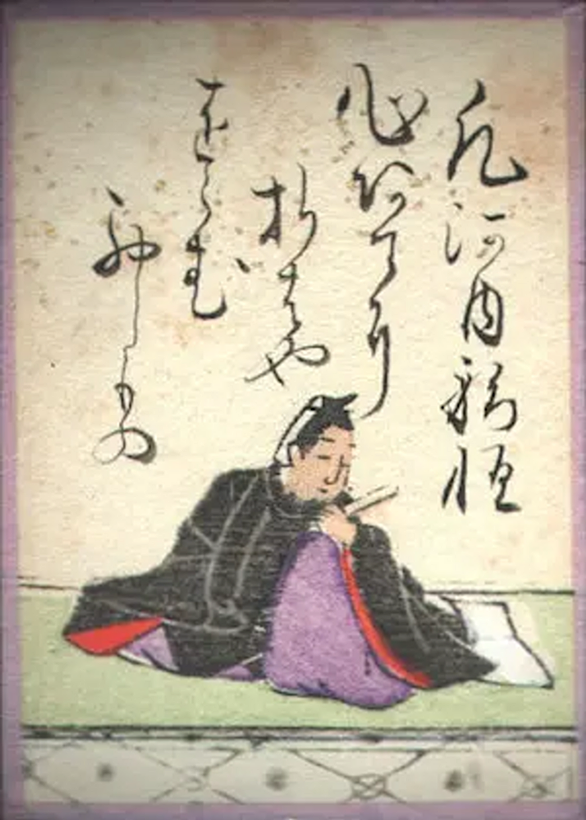 凡河内躬恒
心あてに
折らはや
をらむ
初しもの